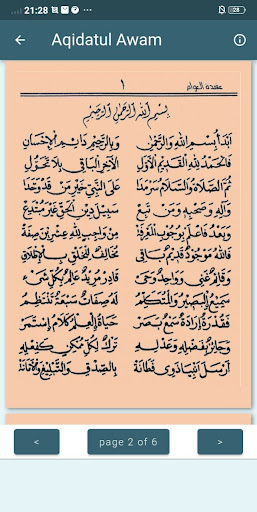 21:28 28
Aqidatul Awam
١ عقيدة العوام
بِسْمِ اللهِ الرَّحْمٰنِ الرَّحِيْمِ
أَبْدَأُ بِسْمِ اللهِ وَالرَّحْمٰنِ وَبِالرَّحِيْمِ دَائِمِ الْإِحْسَانِ
فَالْحَمْدُ لِلّٰهِ الْقَدِيْمِ الْأَوَّلِ الْآخِرِ الْبَاقِيْ بِلَا تَحَوُّلِ
ثُمَّ الصَّلَاةُ وَالسَّلَامُ سَرْمَدَا عَلَى النَّبِيِّ خَيْرِ مَنْ قَدْ وَحَّدَا
وَآلِهِ وَصَحْبِهِ وَمَنْ تَبِعْ سَبِيْلَ دِيْنِ الْحَقِّ غَيْرَ مُبْتَدِعْ
وَبَعْدُ فَاعْلَمْ بِوُجُوْبِ الْمَعْرِفَةْ مِنْ وَاجِبٍ لِلّٰهِ عِشْرِيْنَ صِفَةْ
فَاللهُ مَوْجُوْدٌ قَدِيْمٌ بَاقِيْ مُخَالِفٌ لِلْخَلْقِ بِالْإِطْلَاقِ
وَقَائِمٌ غَنِيْ وَوَاحِدٌ وَحَيّ قَادِرْ مُرِيْدٌ عَالِمٌ بِكُلِّ شَيْءْ
سَمِيْعٌ الْبَصِيْرُ وَالْمُتَكَلِّمُ لَهُ صِفَاتٌ سَبْعَةٌ تَنْتَظِمُ
فَقُدْرَةٌ إِرَادَةٌ سَمْعٌ بَصَرْ حَيَاةٌ الْعِلْمُ كَلَامٌ اسْتَمَرْ
وَجَائِزٌ بِفَضْلِهِ وَعَدْلِهِ تَرْكٌ لِكُلِّ مُمْكِنٍ كَفِعْلِهِ
أَرْسَلَ أَنْبِيَا ذَوِيْ فَطَانَةْ بِالصِّدْقِ وَالتَّبْلِيْغِ وَالْأَمَانَةْ
< page 2 of 6 >